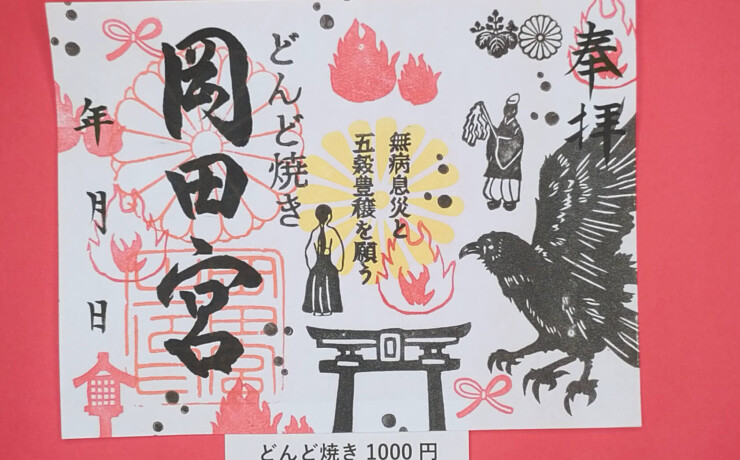 奉拝
無病息災と
五穀豊穣を願う
どんど焼き
岡田宮
年 月 日
どんど焼き 1000 円